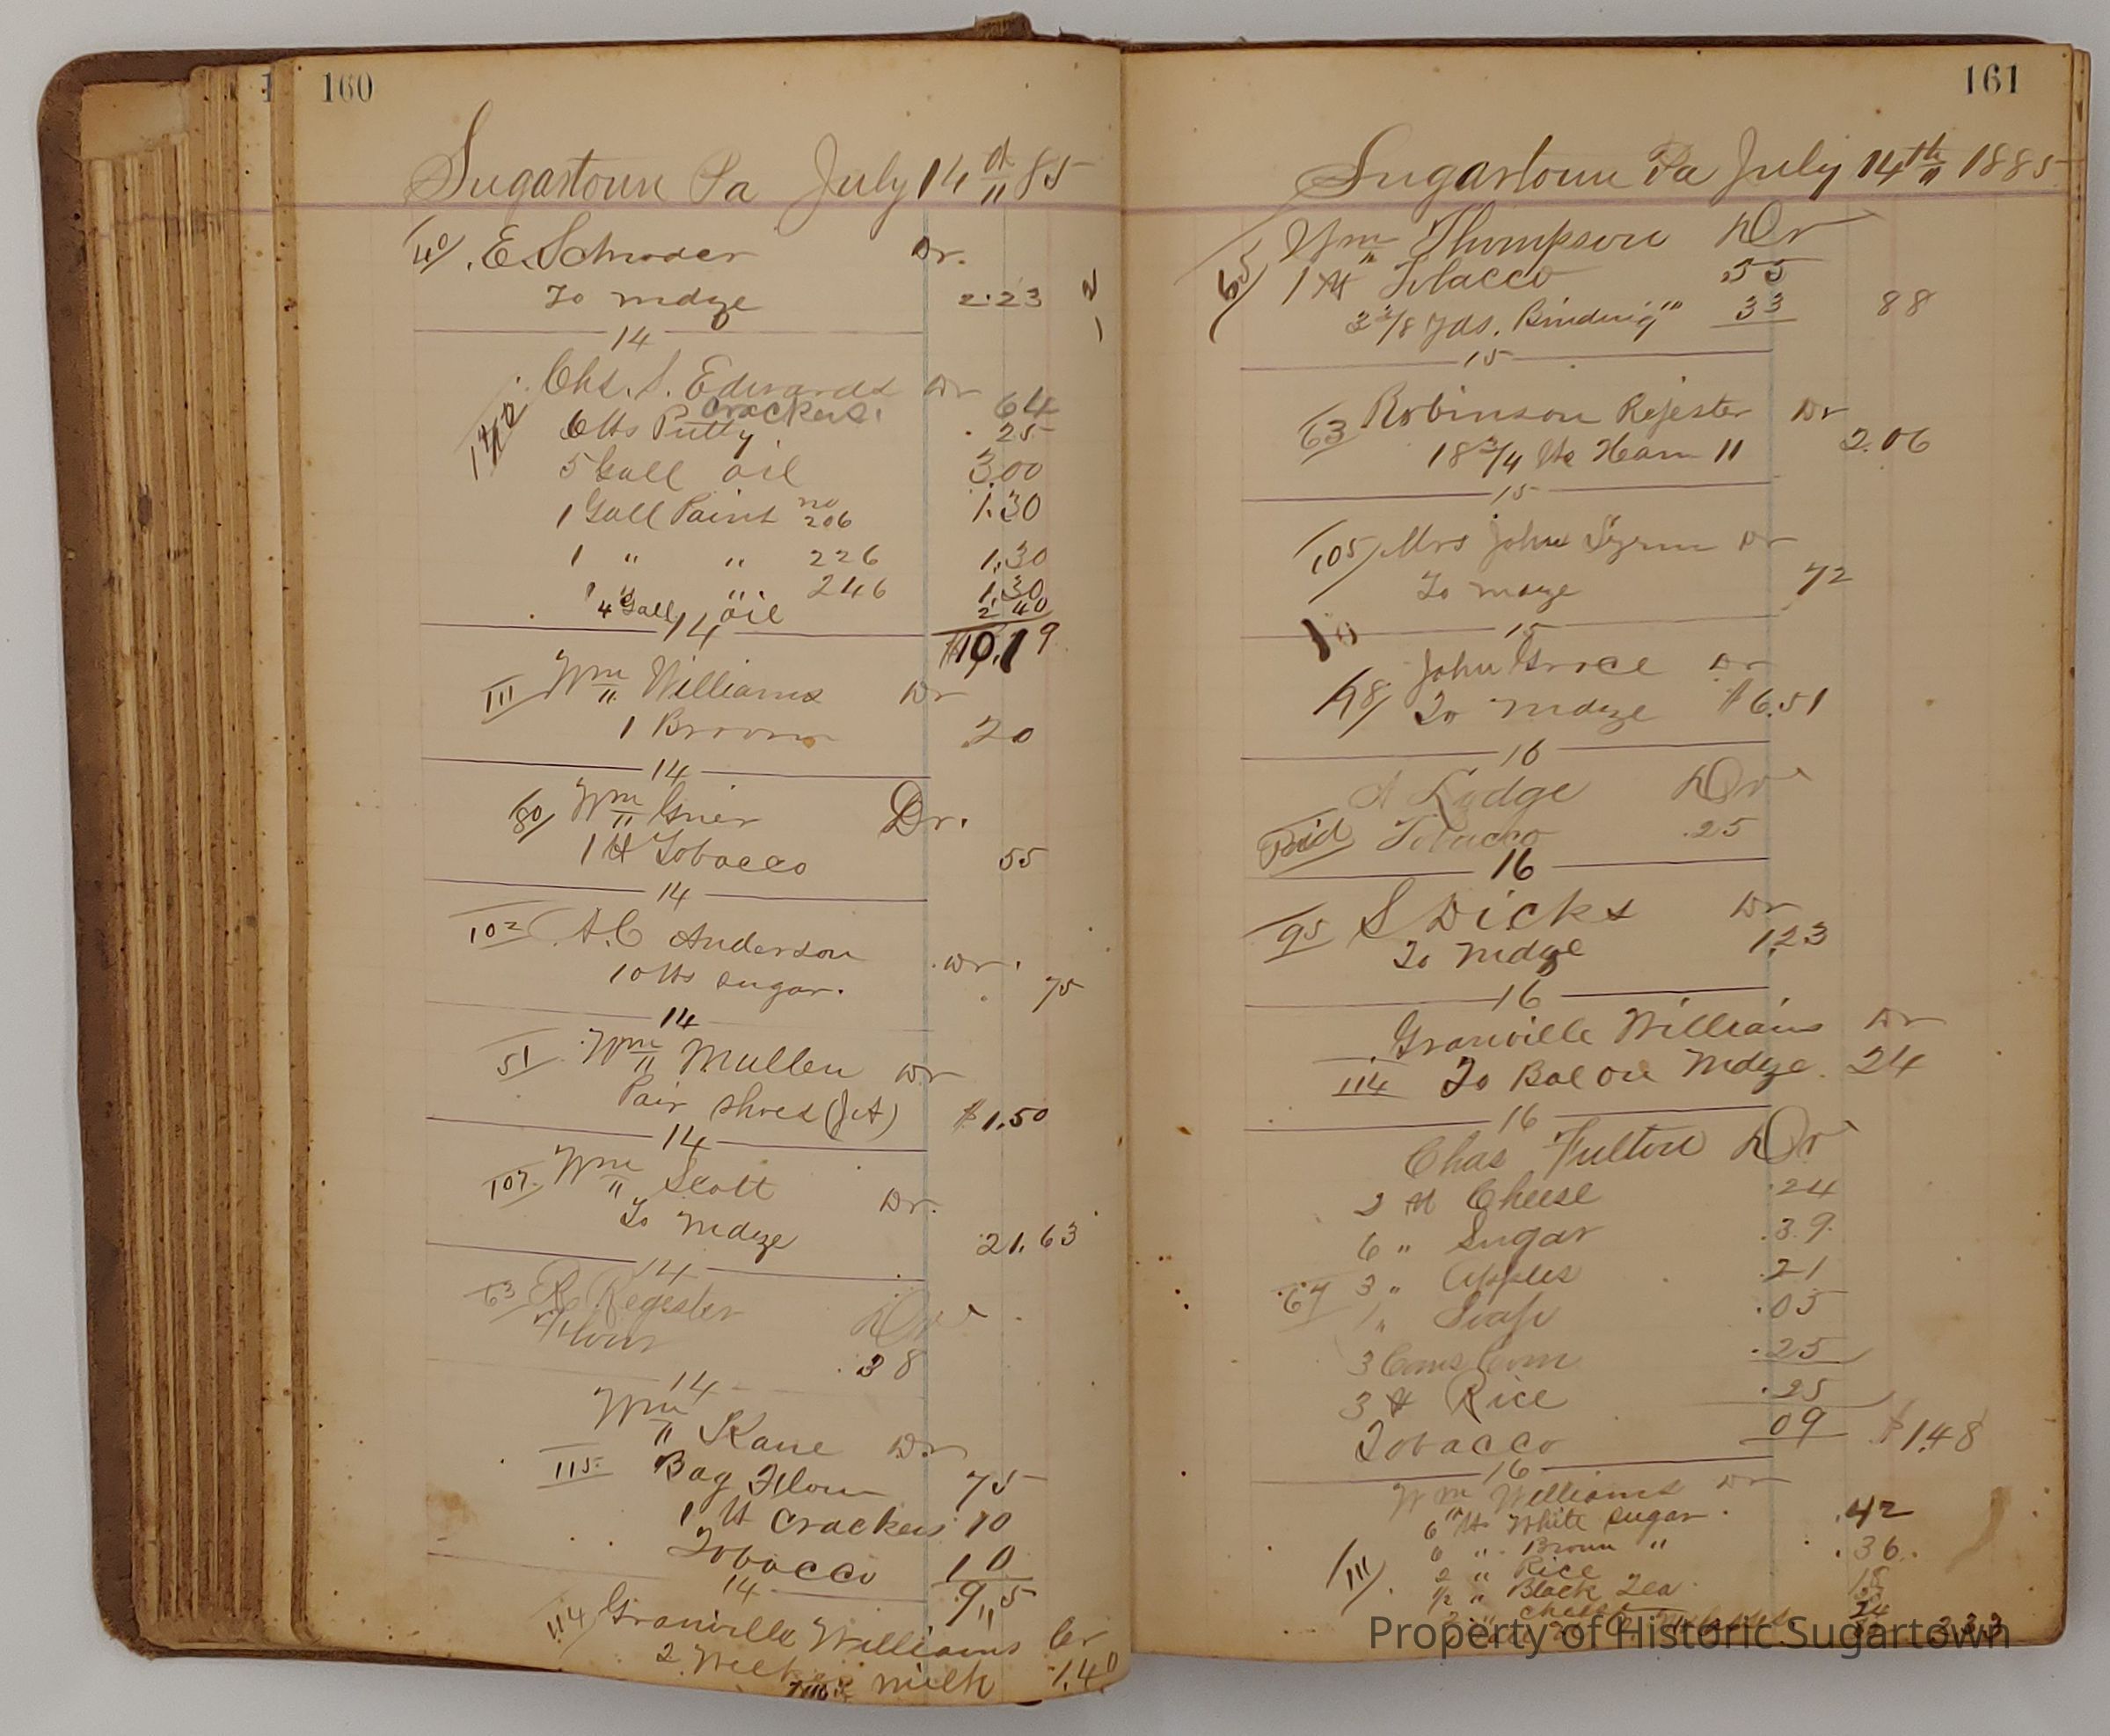 160
Sugartown Pa July 14th 85
40 E. Schroder Dr.
To mdze 2.23
14
Chs. S. Edwards Dr
crackers. 64
6 lbs Putty 25
5 Gall oil 3.00
1 Gall Paint no 206 1.30
1 " " 226 1.30
1 " " 246 1.30
4 Gall oil 2 40
14
$10.19
111 Wm Williams Dr
1 Broom 20
14
80 Wm Grier Dr.
1 lb Tobacco 55
14
102 A.C Anderson Dr.
10 lbs sugar. 75
14
51 Wm Mullen Dr
Pair shoes $1.50
14
107 Wm Scott Dr.
To mdze 21.63
14
63 R Regester Dr
Flour .38
14
Wm Kane Dr
115 Bag Flour 75
1 lb crackers 10
Tobacco 10
14
9"5
114 Granville Williams Cr
2 Weeks milk 1.40
161
Sugartown Pa July 14th 1885
Wm Thompson Dr
65 1 lb Tobacco .55
3 3/8 Yds. Binding 33 88
15
Robinson Rejester Dr
63 18 3/4 lbs Ham 11 2.06
15
105 Mrs John Dr
To mdze 72
15
John Grace Dr
98 To mdze $6.51
16
A Lodge Dr
Paid Tobacco .25
16
95 S Dicks Dr
To mdze 1.23
16
Granville Williams Dr
114 To Bal on mdze. 24
16
Chas Fulton Dr
2 lb Cheese .24
6 " Sugar .39
67 3 " Apples .21
1 " Soap .05
3 Cans Corn .25
3 lb Rice .25
Tobacco 09 $1.48
16
Wm Williams Dr
6 lbs White sugar .42
6 " Brown " .36
111 2 " Rice 18
1/2 " Black Tea
cheese 24
Molasses 2.33
Property of Historic Sugartown